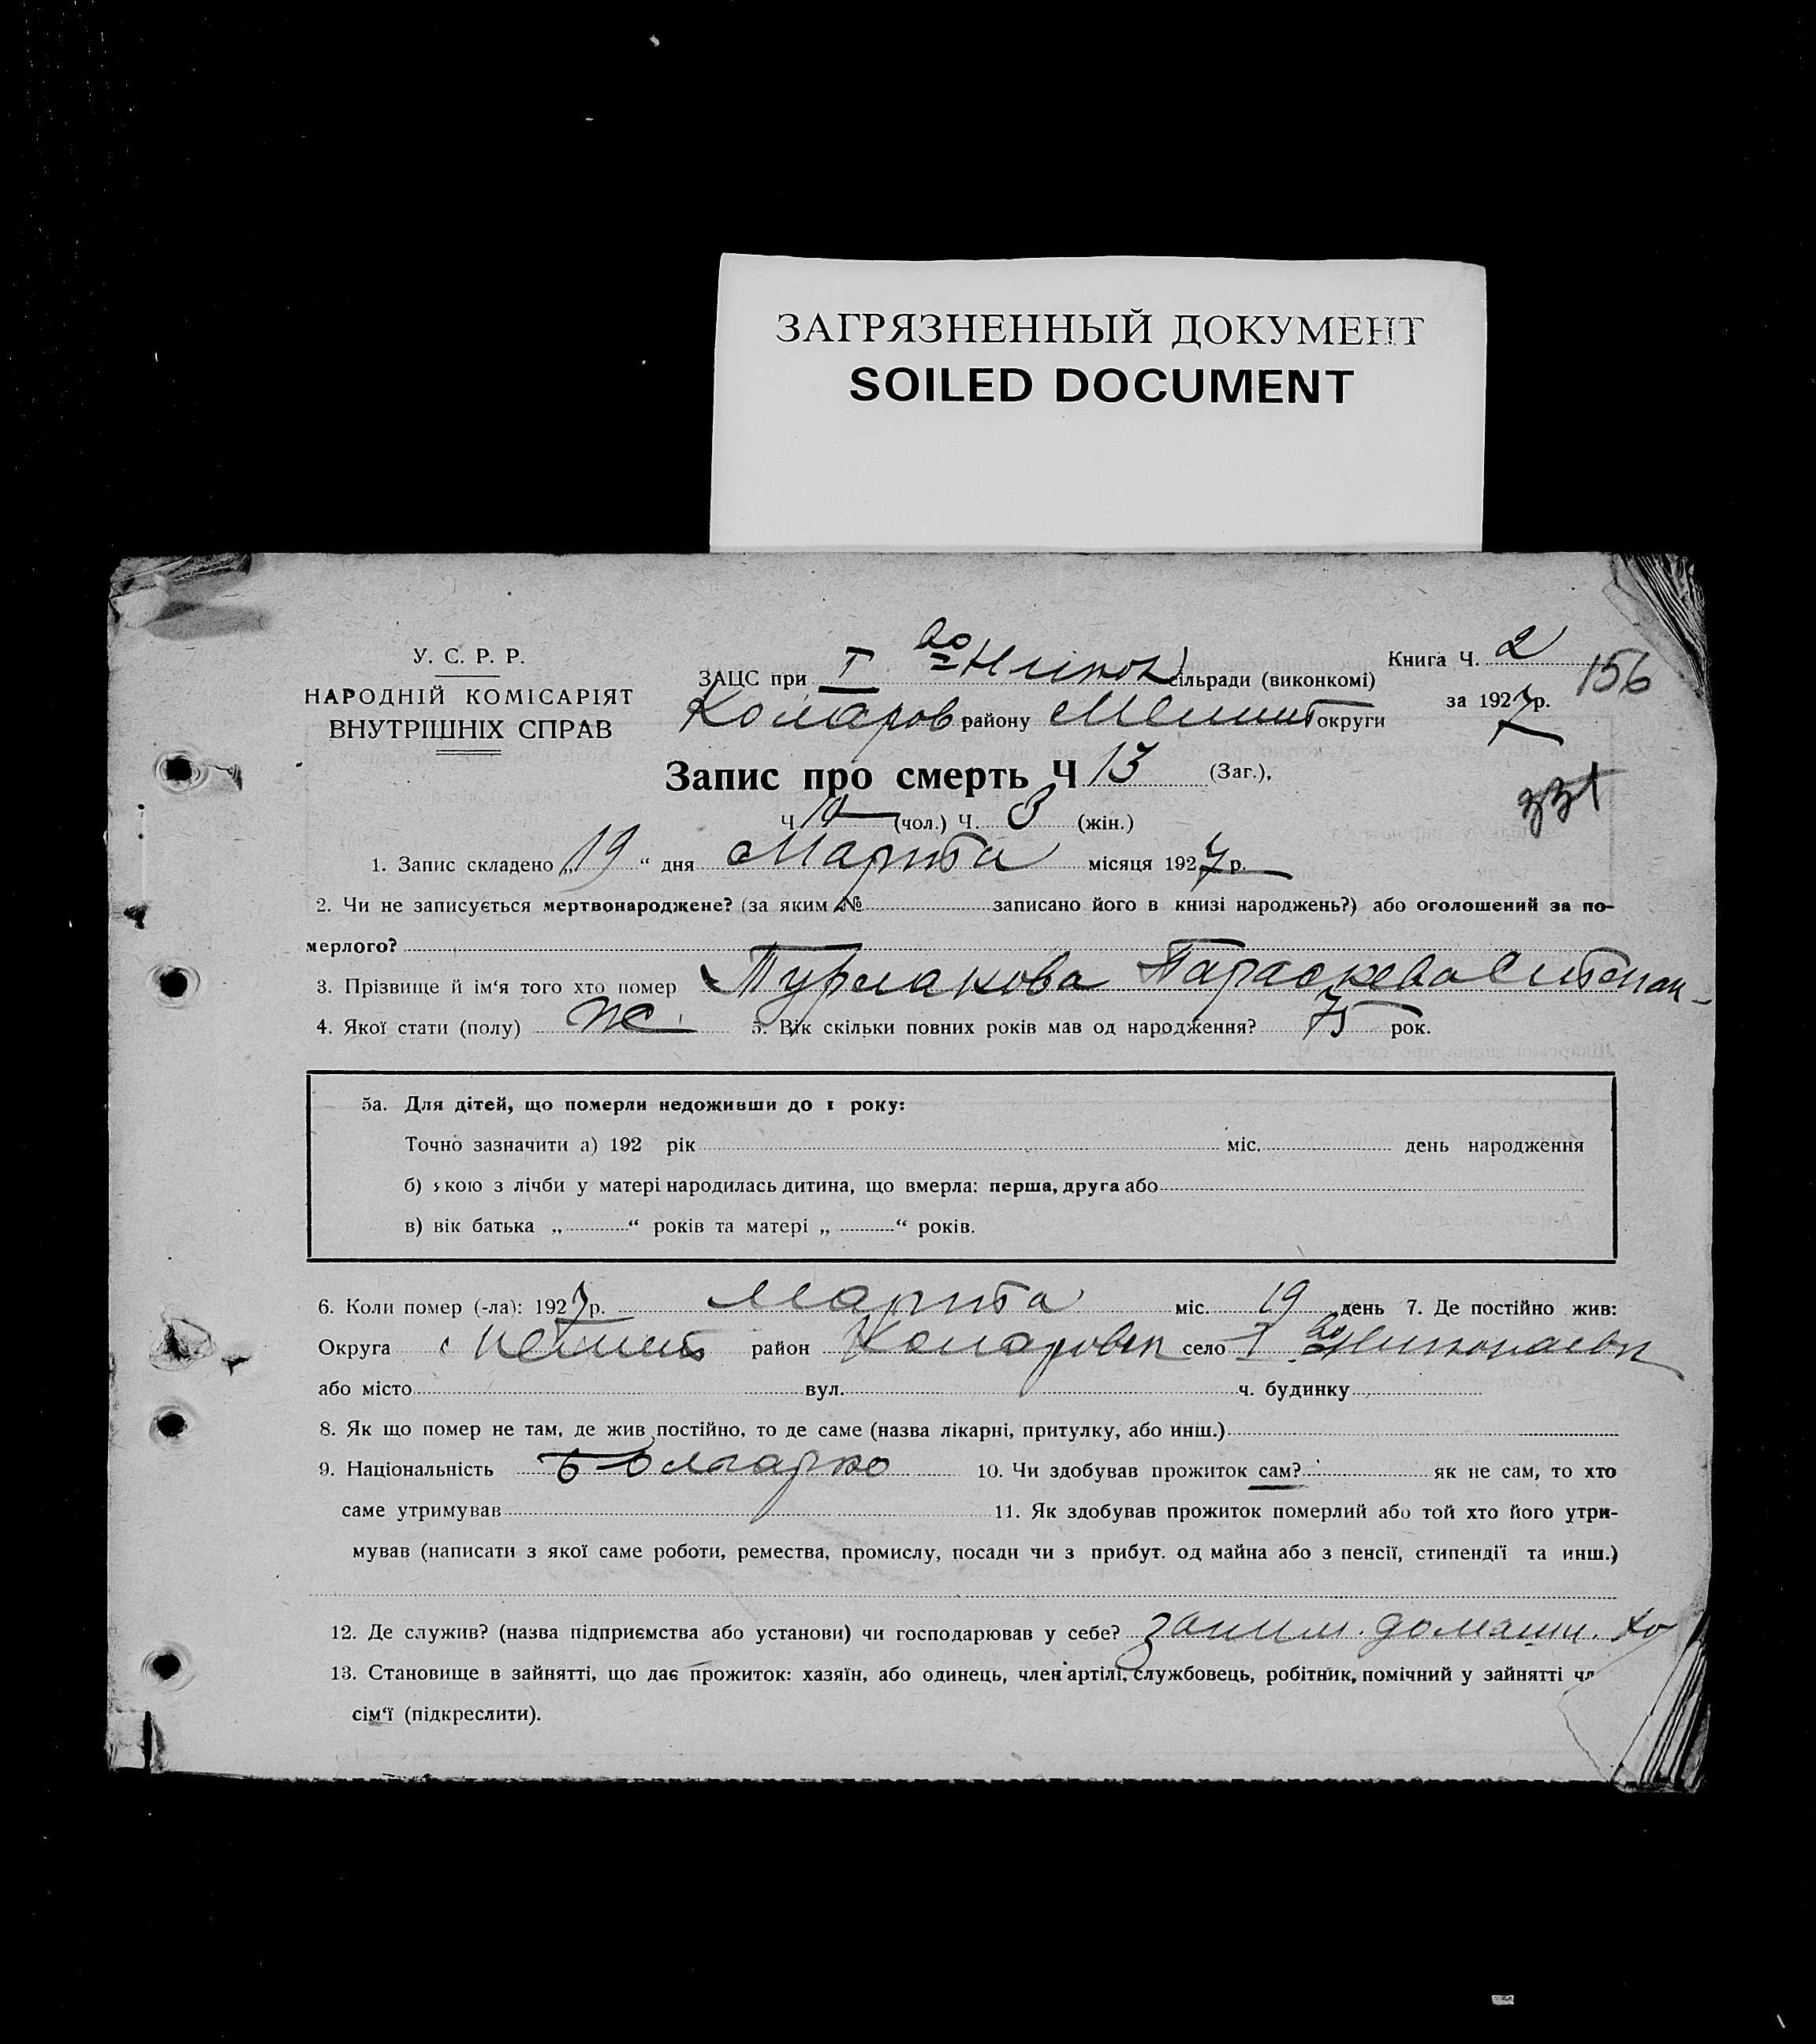 ЗАГРЯЗНЕННЫЙ ДОКУМЕНТ
SOILED DOCUMENT
У. С. Р. Р.
НАРОДНІЙ КОМІСАРІЯТ
ВНУТРІШНІХ СПРАВ
ЗАЦС при I во Нікол сільради (виконкомі)
Комаров району Меліт округи
Книга Ч. 2
156
за 1927 р.
Запис про смерть Ч 13 (Заг.),
331
Ч 10 (чол.) Ч. 3 (жін.)
1. Запис складено „19“ дня Марта місяця 1927 р.
2. Чи не записується мертвонароджене? (за яким № записано його в книзі народжень?) або оголошений за по-
мерлого?
3. Прізвище й ім‘я того хто помер Турлакова Параскева Степан-
4. Якої стати (полу) Ж. 5. Вік скільки повних років мав од народження? 75 рок.
5а. Для дітей, що померли недоживши до 1 року:
Точно зазначити а) 192 рік міс. день народження
б) якою з лічби у матері народилась дитина, що вмерла: перша, друга або
в) вік батька „ “ років та матері „ “ років.
6. Коли помер (-ла): 1927 р. Марта міс. 19 день 7. Де постійно жив:
Округа Меліт район Комаровк село I во Николаевк
або місто вул. ч. будинку
8. Як що помер не там, де жив постійно, то де саме (назва лікарні, притулку, або инш.)
9. Національність Болгарка 10. Чи здобував прожиток сам? як не сам, то хто
саме утримував 11. Як здобував прожиток померлий або той хто його утри-
мував (написати з якої саме роботи, ремества, промислу, посади чи з прибут. од майна або з пенсії, стипендії та инш.)
12. Де служив? (назва підприємства або установи) чи господарював у себе? заним. домашн. хо
13. Становище в зайнятті, що дає прожиток: хазяїн, або одинець, член артілі, службовець, робітник, помічний у зайнятті чл
сім‘ї (підкреслити).